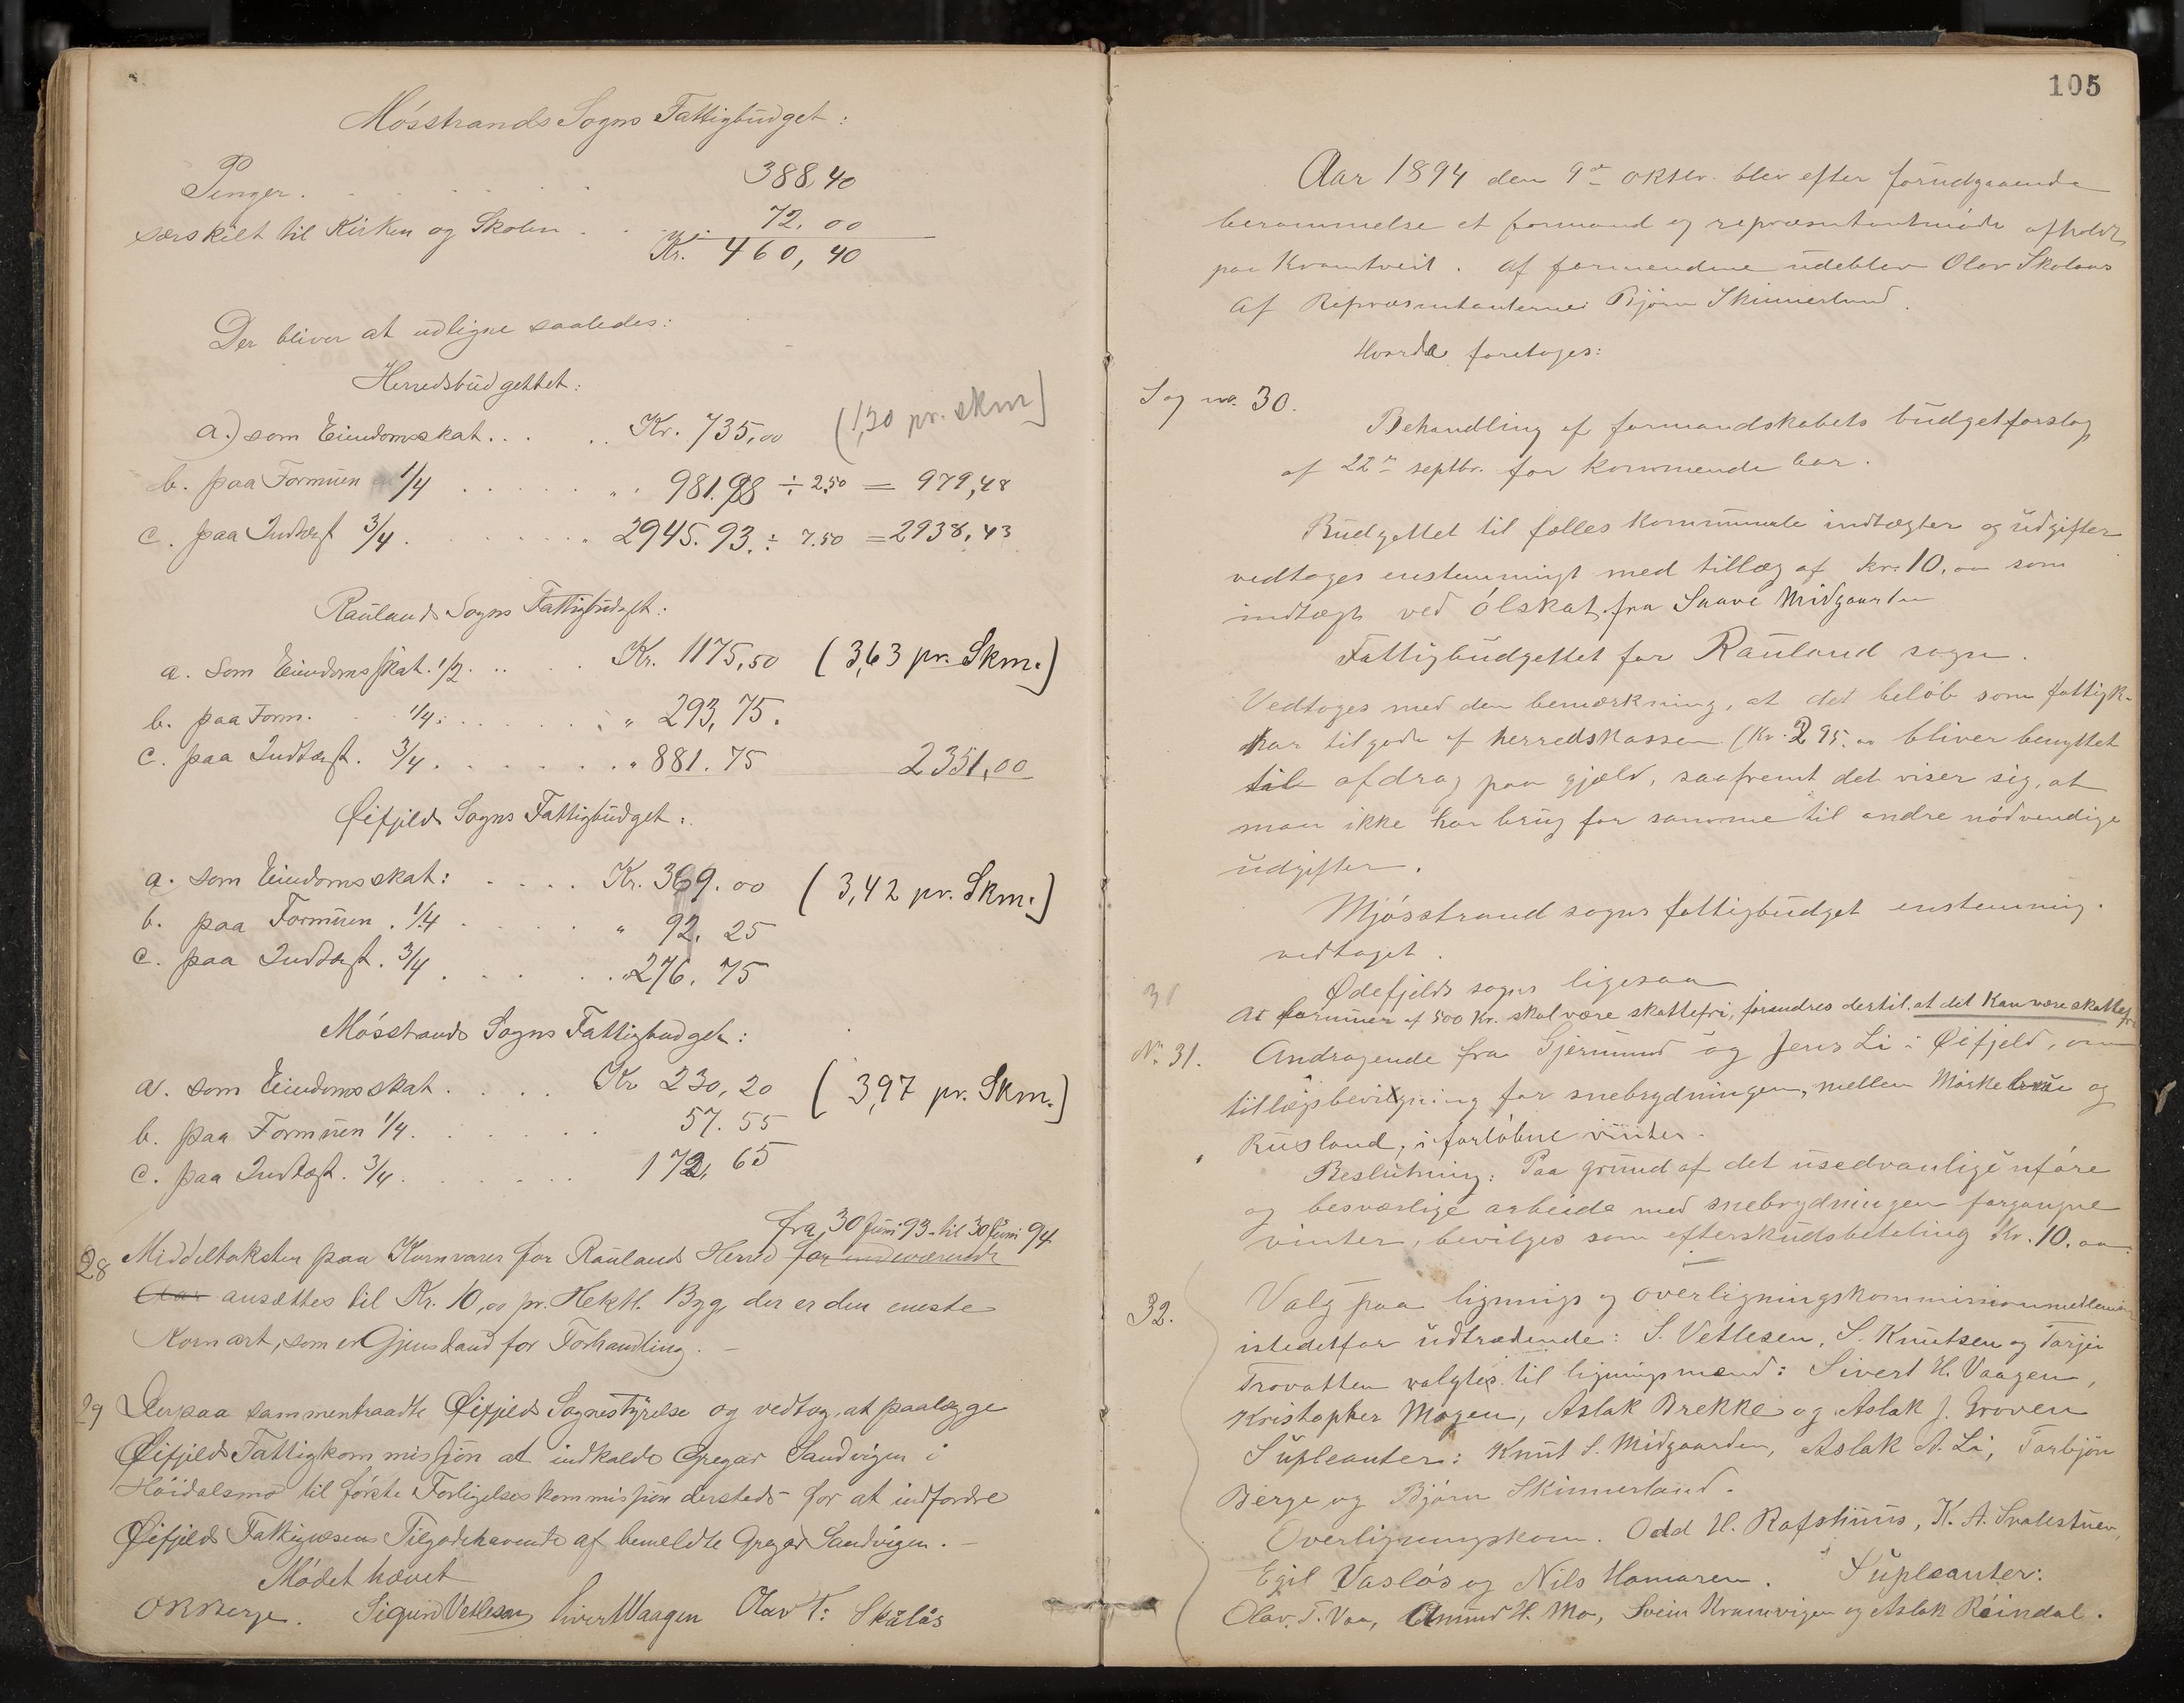 Mósstrands Sogns Fattigbudget:
Penger. . . . . . . 388,40
særskilt til Kirken og Skolen . . . 72,00
Kr. 460,40
Der bliver at udligne saaledes:
Herredsbudgettet:
a.) som Eiendomsskat. . . . . Kr. 735,00 (1,30 pr. skm)
b. paa Formuen 1/4 . . . . . " 981.98 ÷ 2,50 = 979,48
c. paa Indtægt 3/4 . . . . . . " 2945.93. ÷ 7.50 = 2938,43
Raulands Sogns Fattigbudgt:
a. Som Eiendomsskat. 1/2. . . . . Kr. 1175,50 (3,63 pr. Skm.)
b. paa Form. 1/4. . . . . . " 293,75.
c. paa Indtægt. 3/4. . . . . . . " 881.75 2351,00
Øifjelds Sogns Fattigbudget:
a. som Eiendomsskat: . . . . Kr. 369.00 (3,42 pr. Skm.)
b. paa Formuen . 1/4 . . . . . " 92. 25
c. paa Indtægt. 3/4 . . . . . " 276. 75
Mósstrands Sogns Fattigbudget:
a. som Eiendomsskat. . . . . Kr 230,20 (3,97 pr. Skm.)
b. paa Formuen 1/4. . . . . . . 57. 55
c. paa Indtægt. 3/4. . . . . . . 172, 65
fra 30 Juni 93 - til 30 Juni 94
28 Middeltaksten paa Kornvarer for Raulands Herred for indeværende
Aar ansættes til Kr. 10,00 pr. Hektl. Byg, der er den eneste
Kornart, som er Gjenstand for Forhandling. –
29 Derpaa sammentraadte Øifjelds Sognestyrelse og vedtog, at paalægge
Øifjelds Fattigkommission at indkalde Gregar Sandvigen i
Höidalsmo til förste Forligelseskommission dersteds for at indfordre
Øifjelds Fattigvæsens Tilgodehavende af bemeldte Gregar Sandvigen. –
Mödet hævet
O K Berge. Sigurd Vetlesen Sivert Waagen Olav T: Skålås
105
Aar 1894 den 9de oktbr. blev efter forudgaaende
berammelse et formand og repræsentantmöde afholdt
paa Kromtveit. Af formendene udeblev Olav Skolaas
Af Repræsentanterne Björn Skinnerland.
Hvorda foretoges:
Sag no. 30.
Behandling af formandskabets budgetforslag
af 22de septbr. for kommende Aar.
Budgettet til fælles kommunale indtægter og udgifter
vedtoges enstemmigt med tillæg af kr. 10,00 som
indtægt ved ólskat fra Saave Midgaarden
Fattigbudgettet for Rauland sogn.
Vedtoges med den bemærkning, at det belöb som fattigk.
har tilgode af herredskassen (Kr. 295.00 bliver benyttet
til afdrag paa gjæld, saafremt det viser sig, at
man ikke har brug for samme til andre nödvendige
udgifter.
Mjösstrand sogns fattigbudget enstemmig.
vedtaget.
Ødefjelds sogns ligesaa
31 At formuer af 500 Kr. skal være skattefri, forandres dertil, at det kan være skattefri
No. 31. Andragende fra Gjermund og Jens Li i Øifjeld, om
tillægsbevilgning for snebrydningen, mellem Mörkebræ og
Rusland, i forlöbne vinter.
Beslutning: Paa grund af det usedvanlige uföre
og besværlige arbeide med snebrydningen forgangne
vinter, bevilges som efterskudsbetaling Kr. 10.00.
32. Valg paa lignings og overligningskommissionmedlemmer
istedetfor udtrædende: S. Vetlesen, S. Knutsen og Tarjei
Trovatten valgtes til ligningsmænd: Sivert H. Vaagen,
Kristopher Mogen, Aslak Brekke og Aslak J. Groven
Supleanter: Knut S. Midgaarden, Aslak A. Li, Torbjön
Berge og Björn Skinnerland.
Overligningskom. Odd H. Rafshuus, K. A. Svalestuen,
Egil Vaslós og Nils Hamaren. Supleanter:
Olav. T. Vaa, Amund H. Mo, Svein Kromvigen og Aslak Reindal.